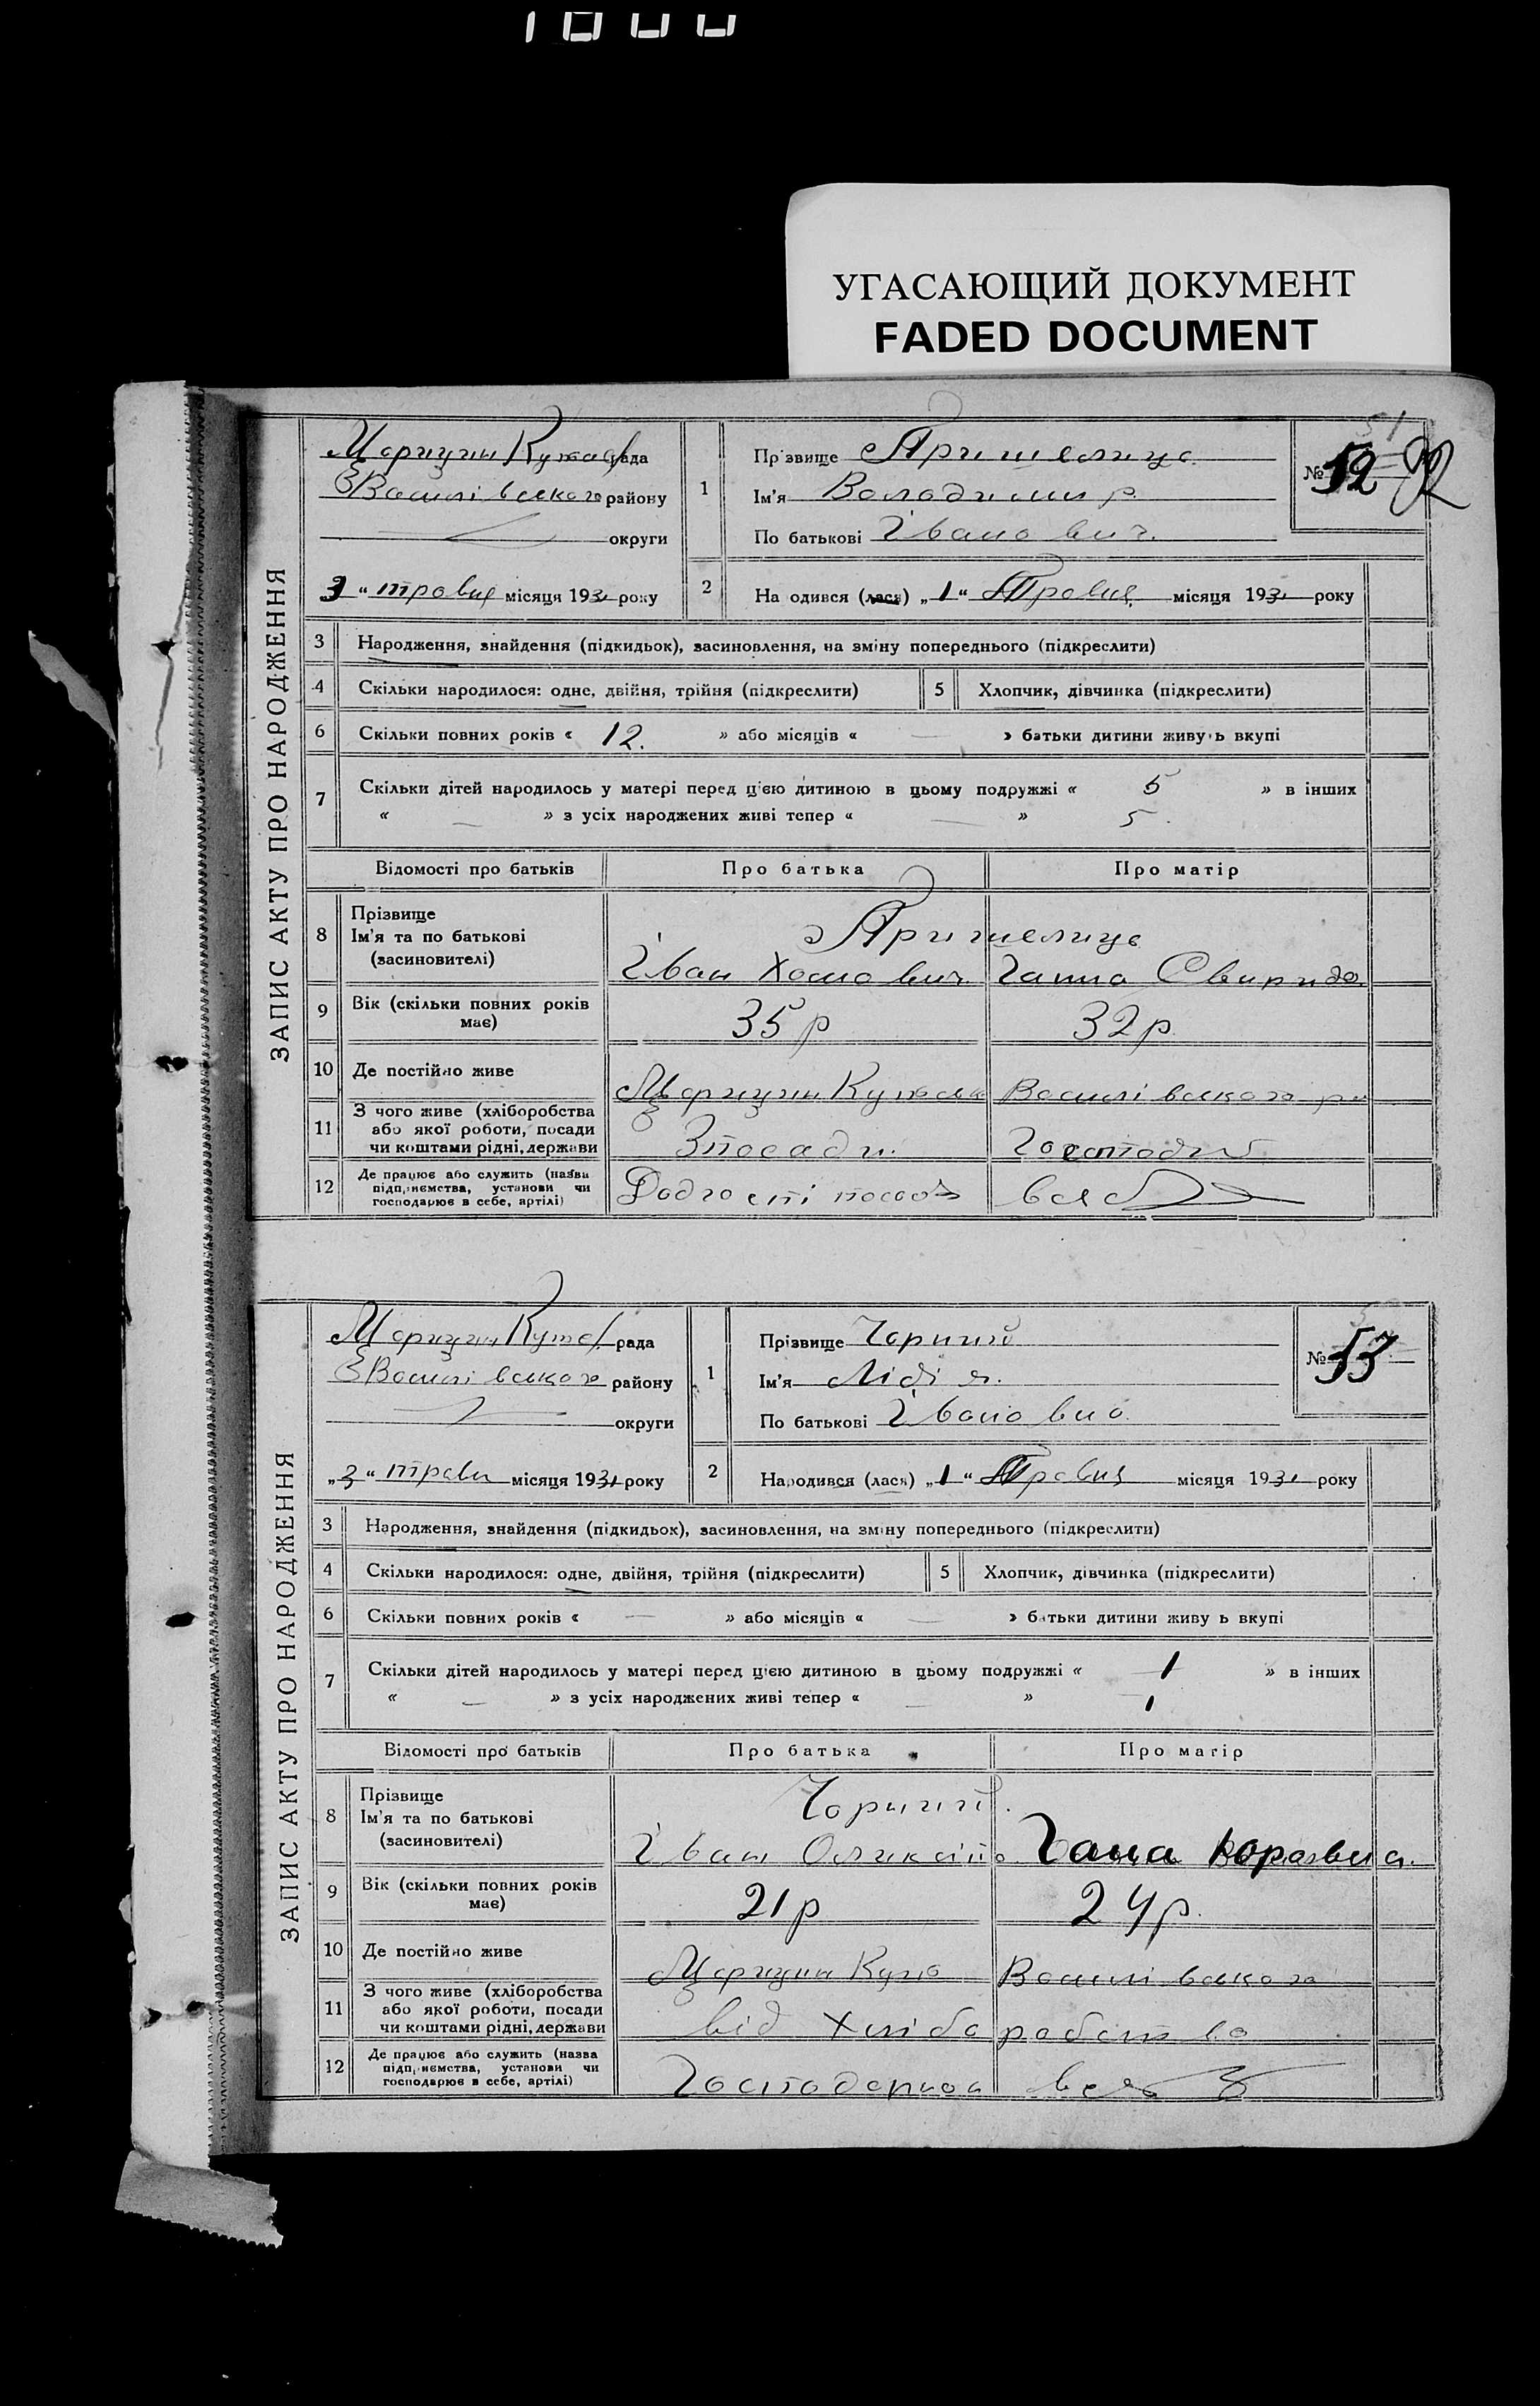 УГАСАЮЩИЙ ДОКУМЕНТ
FADED DOCUMENT
ЗАПИС АКТУ ПРО НАРОДЖЕННЯ
Царицин Кутска рада
Василівського району
округи
„3“ травня місяця 1931 року
1
Прізвище Пришелиця
Ім'я Володимир
По батькові Іванович.
51
№ 52
2
На одився (лася) „1“ Травня місяця 1931 року
3 Народження, знайдення (підкидьок), засиновлення, на зміну попереднього (підкреслити)
4 Скільки народилося: одне, двійня, трійня (підкреслити)
5 Хлопчик, дівчинка (підкреслити)
6 Скільки повних років « 12. » або місяців « — » батьки дитини живуть вкупі
7 Скільки дітей народилось у матері перед цією дитиною в цьому подружжі « 5 » в інших
« — » з усіх народжених живі тепер « — » 5.
Відомості про батьків Про батька Про матір
8 Прізвище
Ім'я та по батькові
(засиновителі)
Пришелиця
Іван Хомович. Ганна Свиридо
9 Вік (скільки повних років має)
35 р 32 р.
10 Де постійно живе
Царицин Кутська Василівського р
11 З чого живе (хліборобства
або якої роботи, посади
чи коштами рідні, держави
З посади.
12 Де працює або служить (назва
підприємства, установи чи
господарює в себе, артілі)
ЗАПИС АКТУ ПРО НАРОДЖЕННЯ
Царицин Кутс рада
Василівського району
округи
„3“ травн місяця 1931 року
1
Прізвище Чорний
Ім'я Лідія.
По батькові Івановна
№ 53
2
Народився (лася) „1“ Травня місяця 1931 року
3 Народження, знайдення (підкидьок), засиновлення, на зміну попереднього (підкреслити)
4 Скільки народилося: одне, двійня, трійня (підкреслити)
5 Хлопчик, дівчинка (підкреслити)
6 Скільки повних років « — » або місяців « — » батьки дитини живу ь вкупі
7 Скільки дітей народилось у матері перед цією дитиною в цьому подружжі « 1 » в інших
« — » з усіх народжених живі тепер « — » 1
Відомості про батьків Про батька Про матір
8 Прізвище
Ім'я та по батькові
(засиновителі)
Чорний.
Іван Гана Юравна.
9 Вік (скільки повних років має)
21 р 24 р.
10 Де постійно живе
Царицин Кутс Василівського
11 З чого живе (хліборобства
або якої роботи, посади
чи коштами рідні, держави
від Хліборобства
12 Де працює або служить (назва
підприємства, установи чи
господарює в себе, артілі)